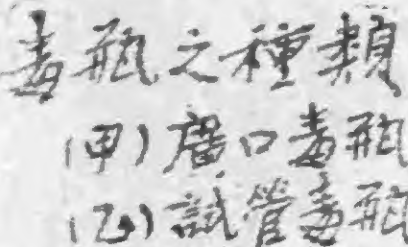 毒瓶之種類
(甲)廣口毒瓶
(乙)試管毒瓶